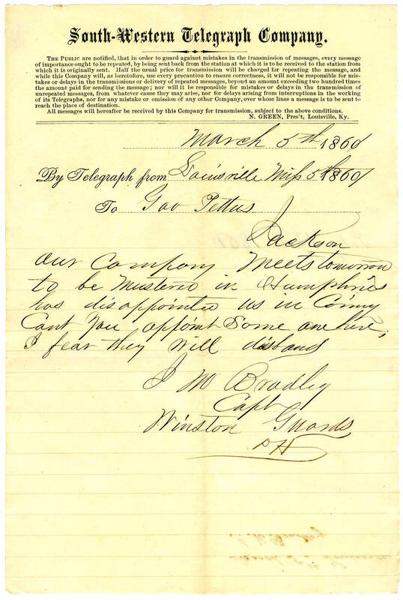 South-Western Telegraph Company.
THE PUBLIC are notified, that in order to guard against mistakes in the transmission of messages, every message
of importance ought to be repeated, by being sent back from the station at which it is to be received to the station from
which it is originally sent. Half the usual price for transmission will be charged for repeating the message, and
while this Company will, as heretofore, use every precaution to ensure correctness, it will not be responsible for mis-
takes or delays in the transmission or delivery of repeated messages, beyond an amount exceeding two hundred times
the amount paid for sending the message; nor will it be responsible for mistakes or delays in the transmission of
unrepeated messages, from whatever cause they may arise, nor for delays arising from interruptions in the working
of its Telegraphs, nor for any mistake or omission of any other Company, over whose lines a message is to be sent to
reach the place of destination.
All messages will hereafter be received by this Company for transmission, subject to the above conditions.
N. GREEN, Pres't, Louisville, Ky.
March 5th 1861
By Telegraph from Louisville Miss 5th 1861
To Gov Pettus
Jackson
Our Company Meets tomorrow
to be Mustered in Humphries
has disappointed us in Coming
Cant You appoint Some one here,
I fear they will disband
J M Bradley
Capt
Winston Guards
DH